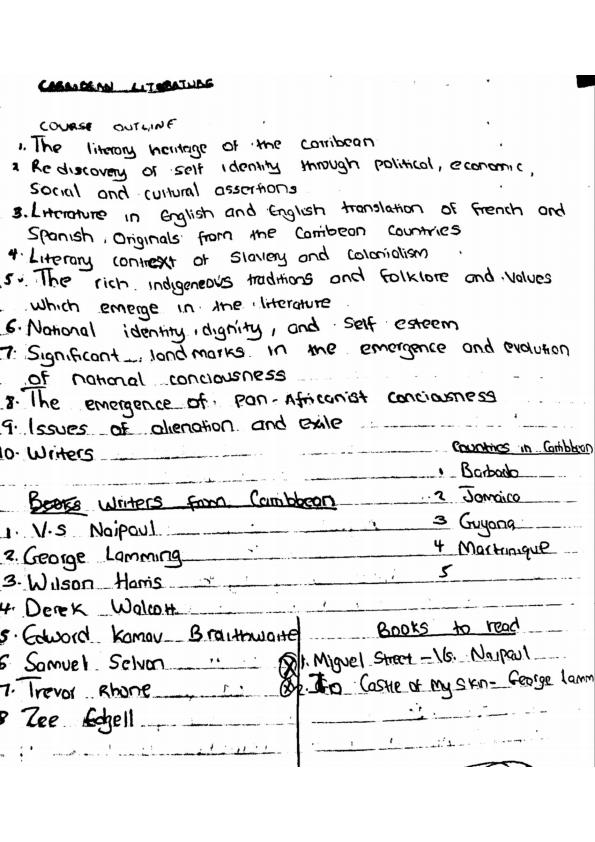 CARIBBEAN LITERATURE
COURSE OUTLINE
1. The literary heritage of the Carribean
2 Re discovery of self identity through political, economic,
Social and cultural assertions
3. Literature in English and English translation of French and
Spanish, Originals from the Carribean Countries
4. Literary context of Slavery and Colonialism
5. The rich indigeneous traditions and folklore and values
which emerge in the literature
6. National identity, dignity, and self esteem
7. Significant land marks in the emergence and evolution
of national conciousness
8. The emergence of pan-Africanist conciousness
9. Issues of alienation and exile
10. Writers
Countries in Carribbean
1 Barbado
2 Jamaica
3 Guyana
4 Martinique
5
Books Writers from Carribbean
1. V.S Naipaul
2. George Lamming
3. Wilson Harris
4. Derek Walcott
5. Edward Kamau Braithwaite
6 Samuel Selvon
7. Trevor Rhone
8 Zee Edgell
Books to read
1. Miguel Street - VS. Naipaul
2. In Castle of My Skin - George Lamm